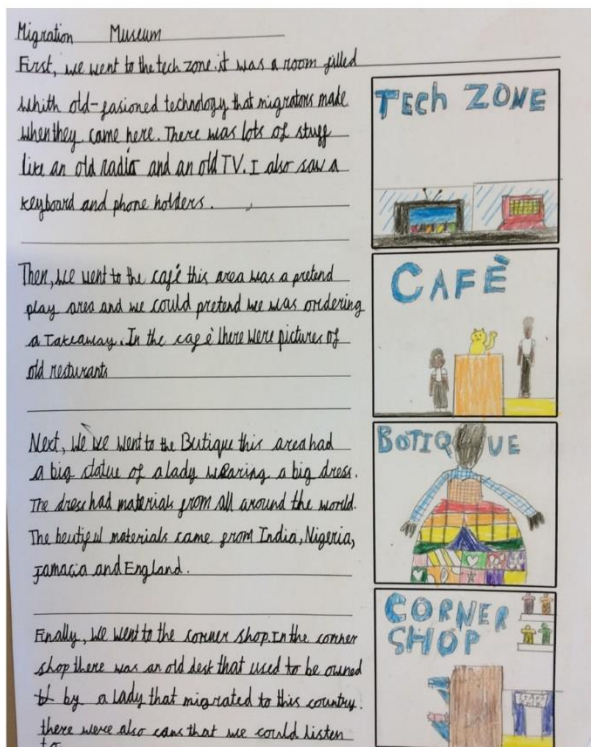 Migration Museum
First, we went to the tech zone. it was a room filled
whith old-fasioned technology that migrators make
when they came here. There was lots of stuff
like an old radio and an old TV. I also saw a
keyboard and phone holders.
TECh ZONE
Then, we went to the café this area was a pretend
play area and we could pretend we was ordering
a Takeaway. In the cafè there were pictures of
old resturants
CAFÈ
Next, We we went to the Butique this area had
a big statue of a lady wearing a big dress.
The dress had materials from all around the world.
The beutiful materials came from India, Nigeria,
Jamacia and England.
BOTIQUE
Finally, we went to the corner shop. In the corner
shop there was an old desk that used to be owned
by a lady that migrated to this country.
there were also cans that we could listen
to
CORNER
SHOP